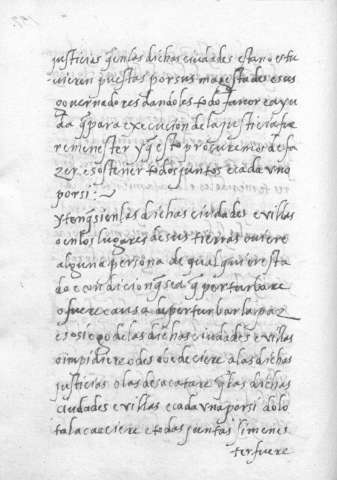 justicias q̃ en las dichas ciudades estan o estu
vieren puestas por sus magestades e sus
governadores dandolas todo favor e ayu
da q̃ para execucion de la justicia fue
re menester y q̃ esto procuremos de fa
zer e sostener todos juntos e cada uno
por si:
yten q̃ si en las dichas ciudades e villas
o en los lugares de sus tierras oviere
alguna persona de qualquier esta
do e condicion q̃ sea q̃ perturbare
o fuere causa de perturbar la paz
e sosiego de las dichas ciudades e villas
o impidiere o desobedeciere a las dichas
justicias o las desacatare q̃ las dichas
ciudades e villas e cada una por si do lo
tal acaeciere e todas juntas si menes
ter fuere